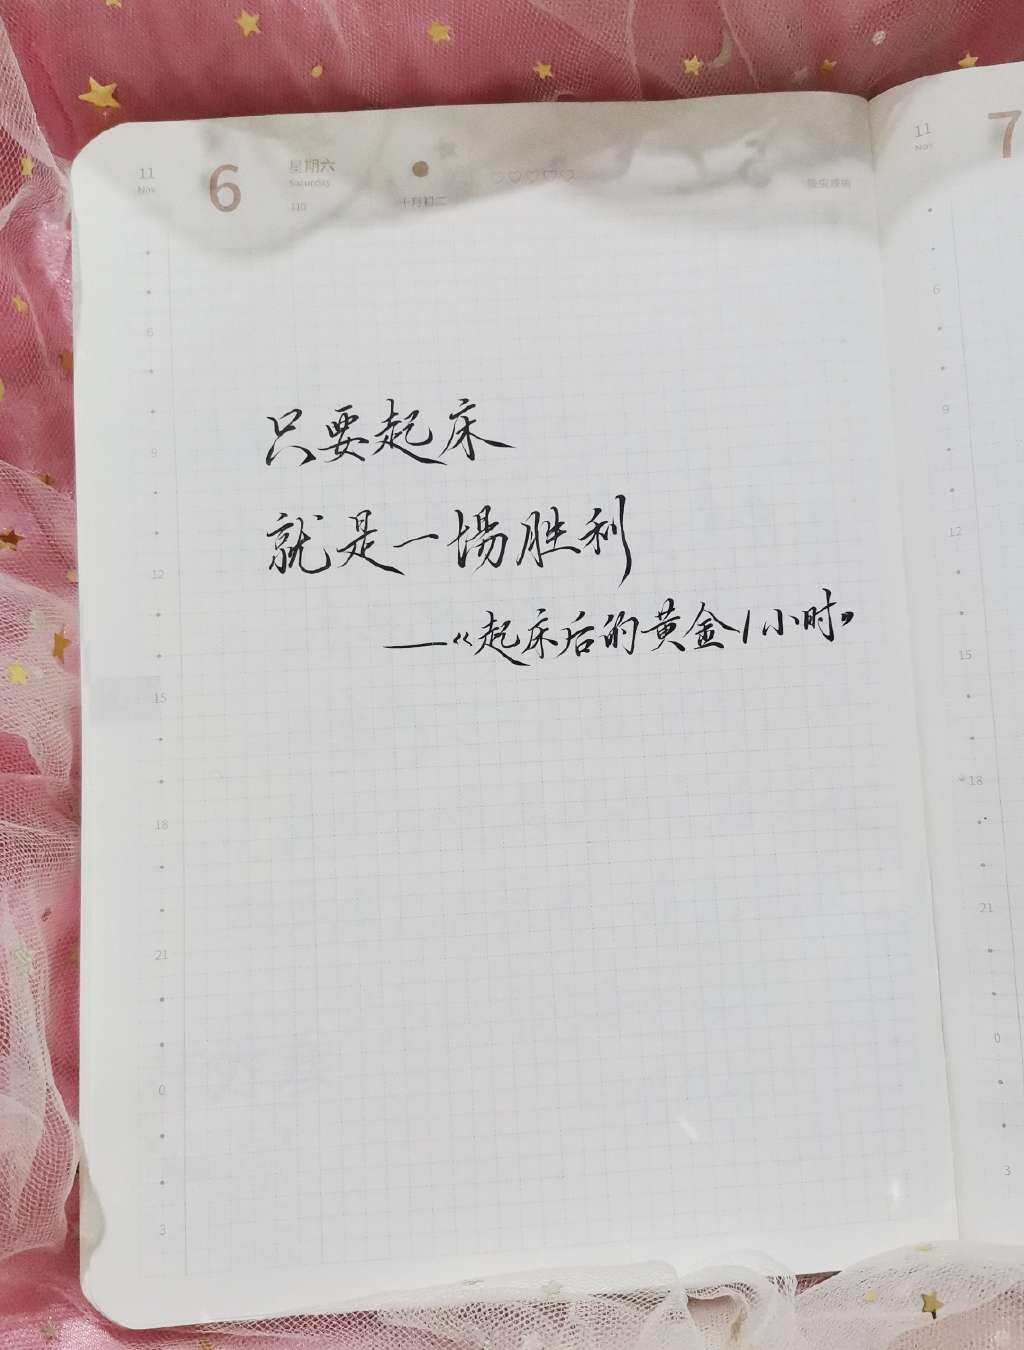 11
Nov
6
星期六
Saturday
310
十月初二
只要起床
就是一場胜利
——《起床后的黄金1小时》
6
9
12
15
18
21
0
3
11
Nov
7
6
9
12
15
18
21
0
3